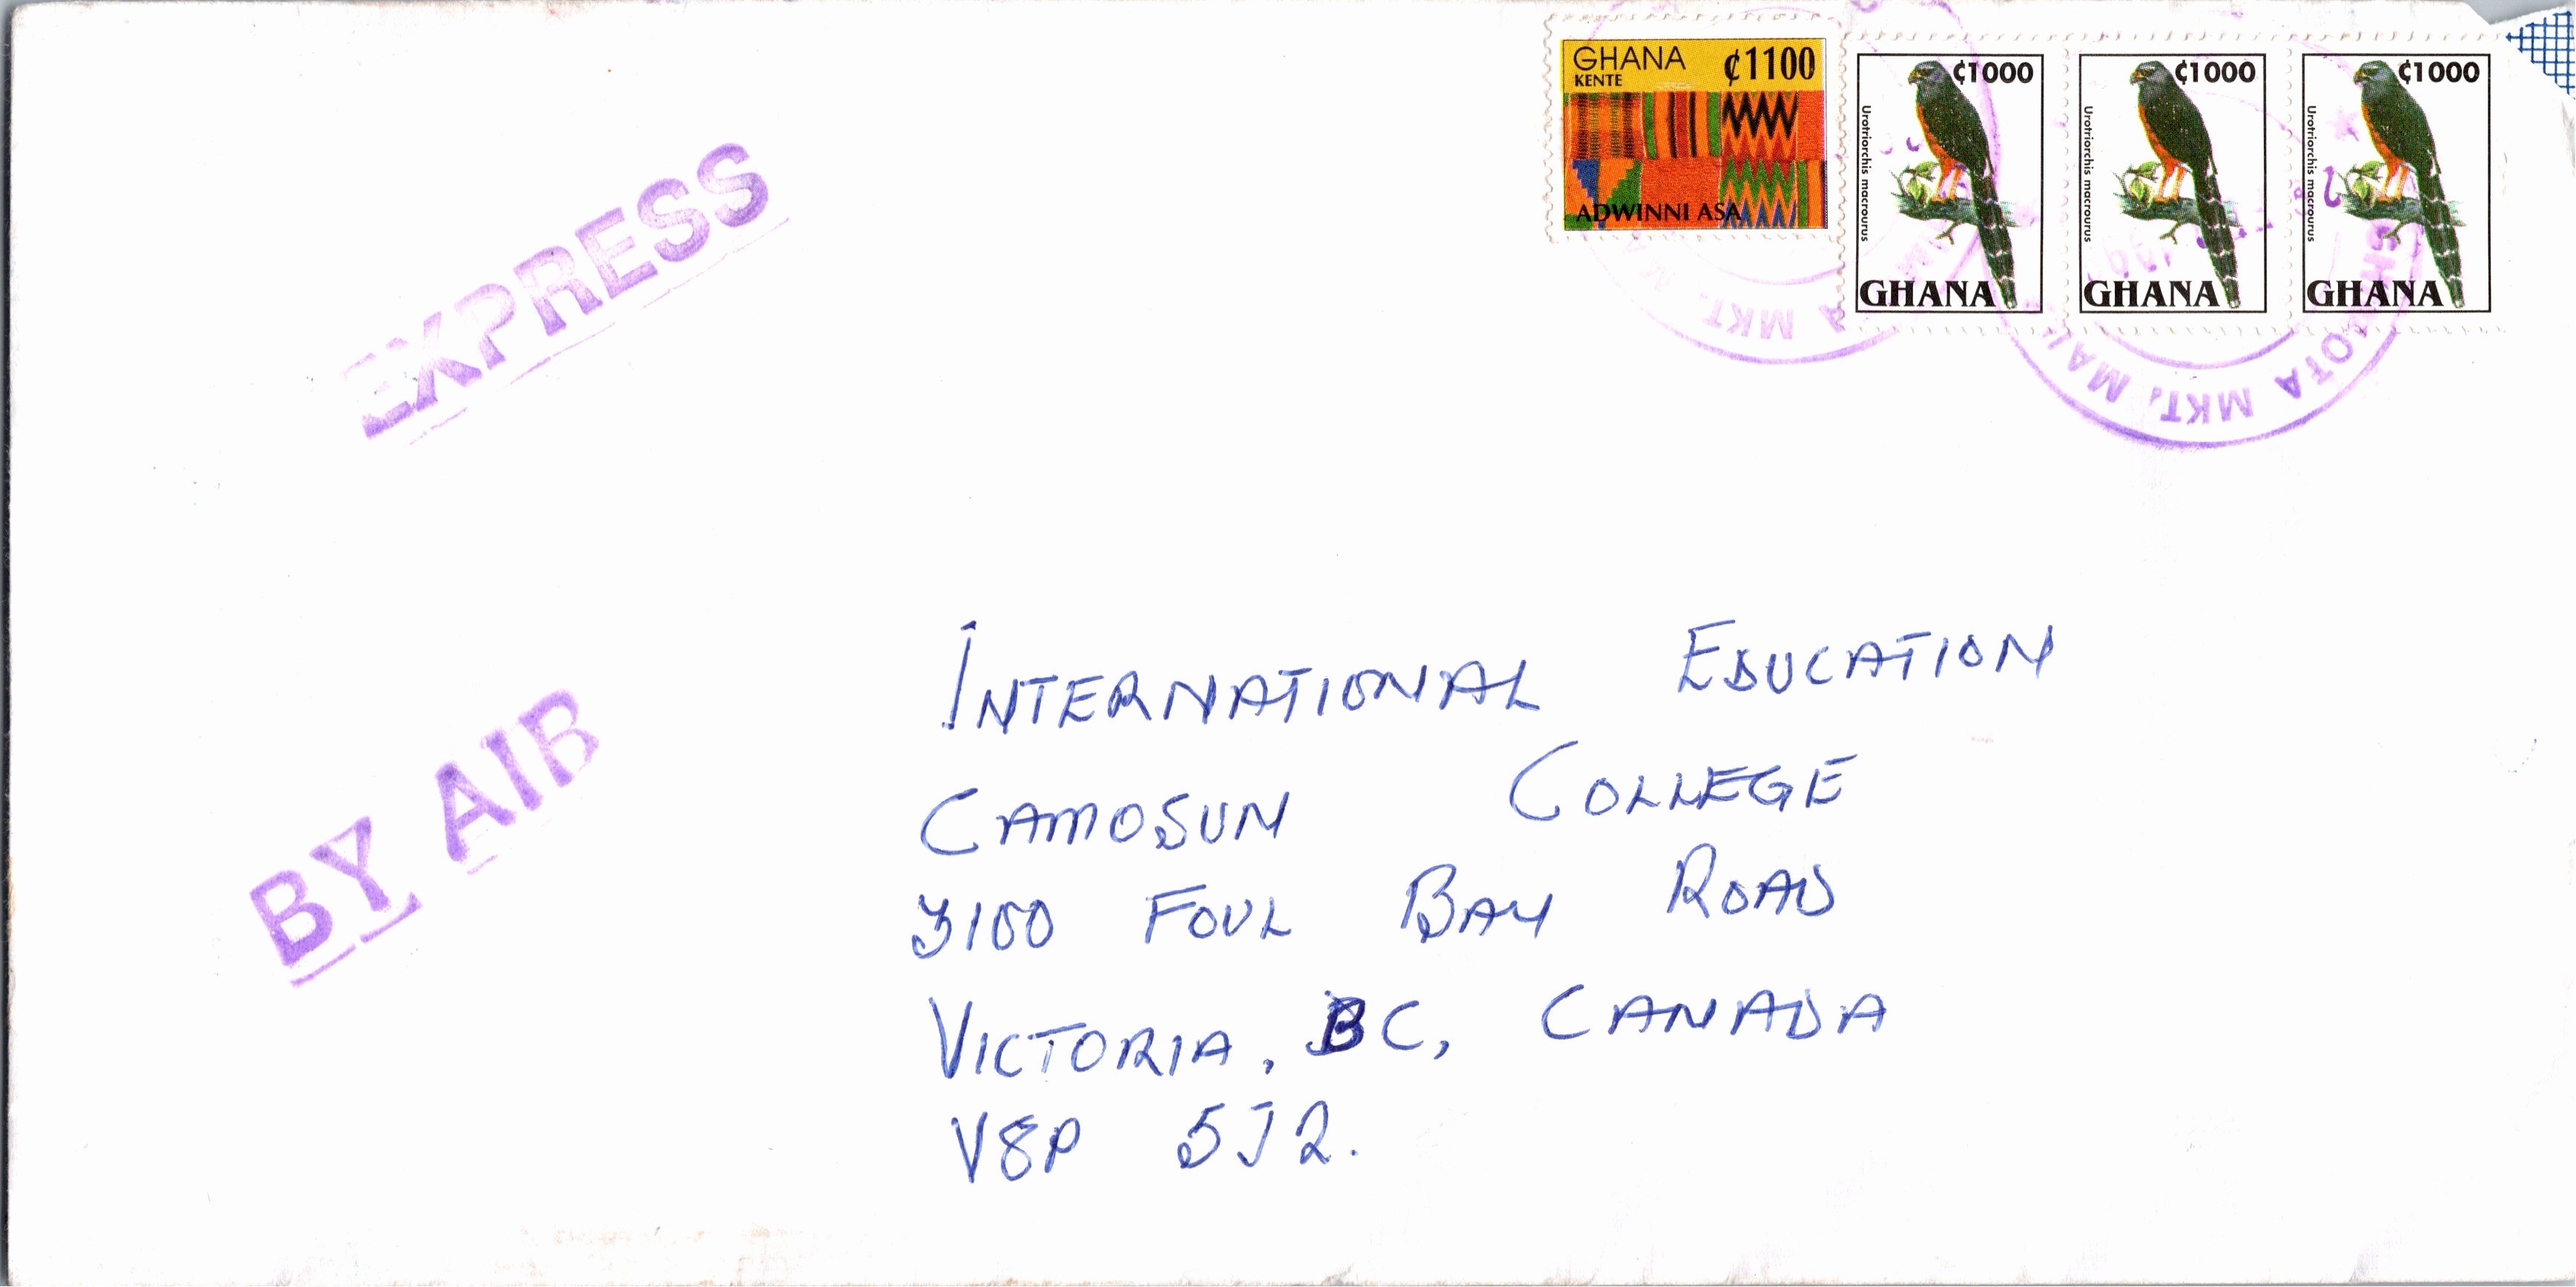 GHANA ₵1100
KENTE
ADWINNI ASA
₵1000
Urotriorchis macrourus
GHANA
₵1000
Urotriorchis macrourus
GHANA
₵1000
Urotriorchis macrourus
GHANA
A MKT. MA
OTA MKT, MA
EXPRESS
BY AIR
INTERNATIONAL EDUCATION
CAMOSUN COLLEGE
3100 FOUL BAY ROAD
VICTORIA, BC, CANADA
V8P 5J2.